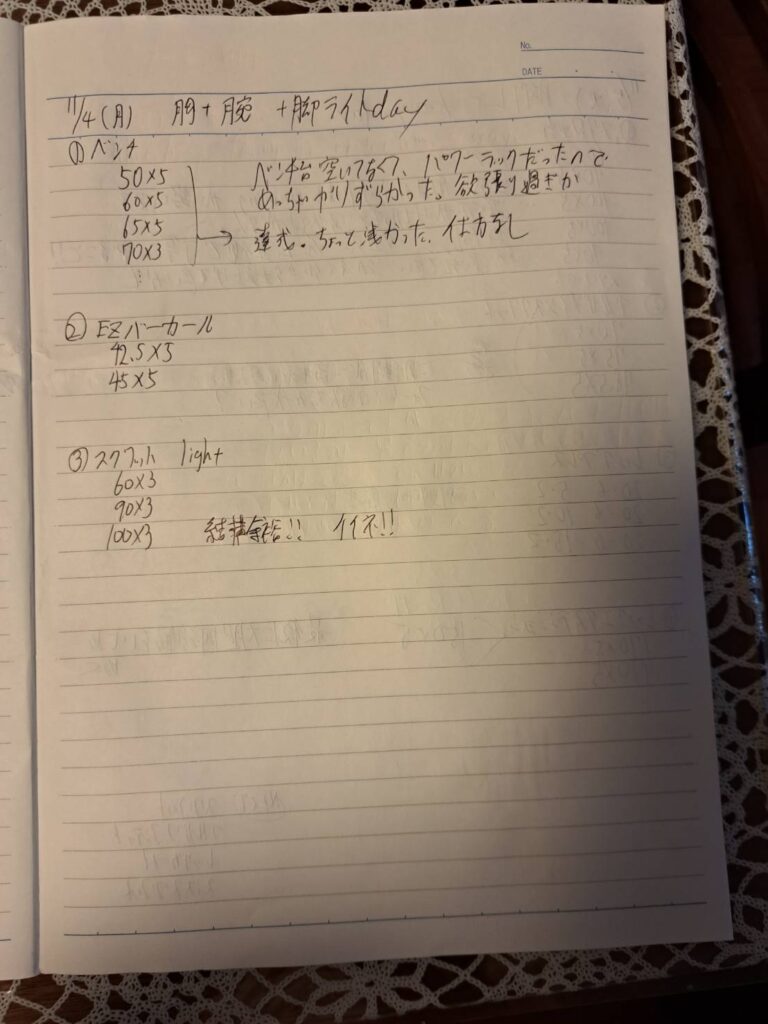 No.
DATE
11/4(月) 胸+腕 +脚ライトday
① ベンチ
50×5 ベンチ台空いてなくて、パワーラックだったので
60×5 めっちゃやりずらかった。欲張り過ぎか
65×5
70×3 → 達成。ちょっと浅かった、仕方なし
② EZバーカール
42.5×5
45×5
③ スクワット light
60×3
90×3
100×3 結構余裕!! イイネ!!